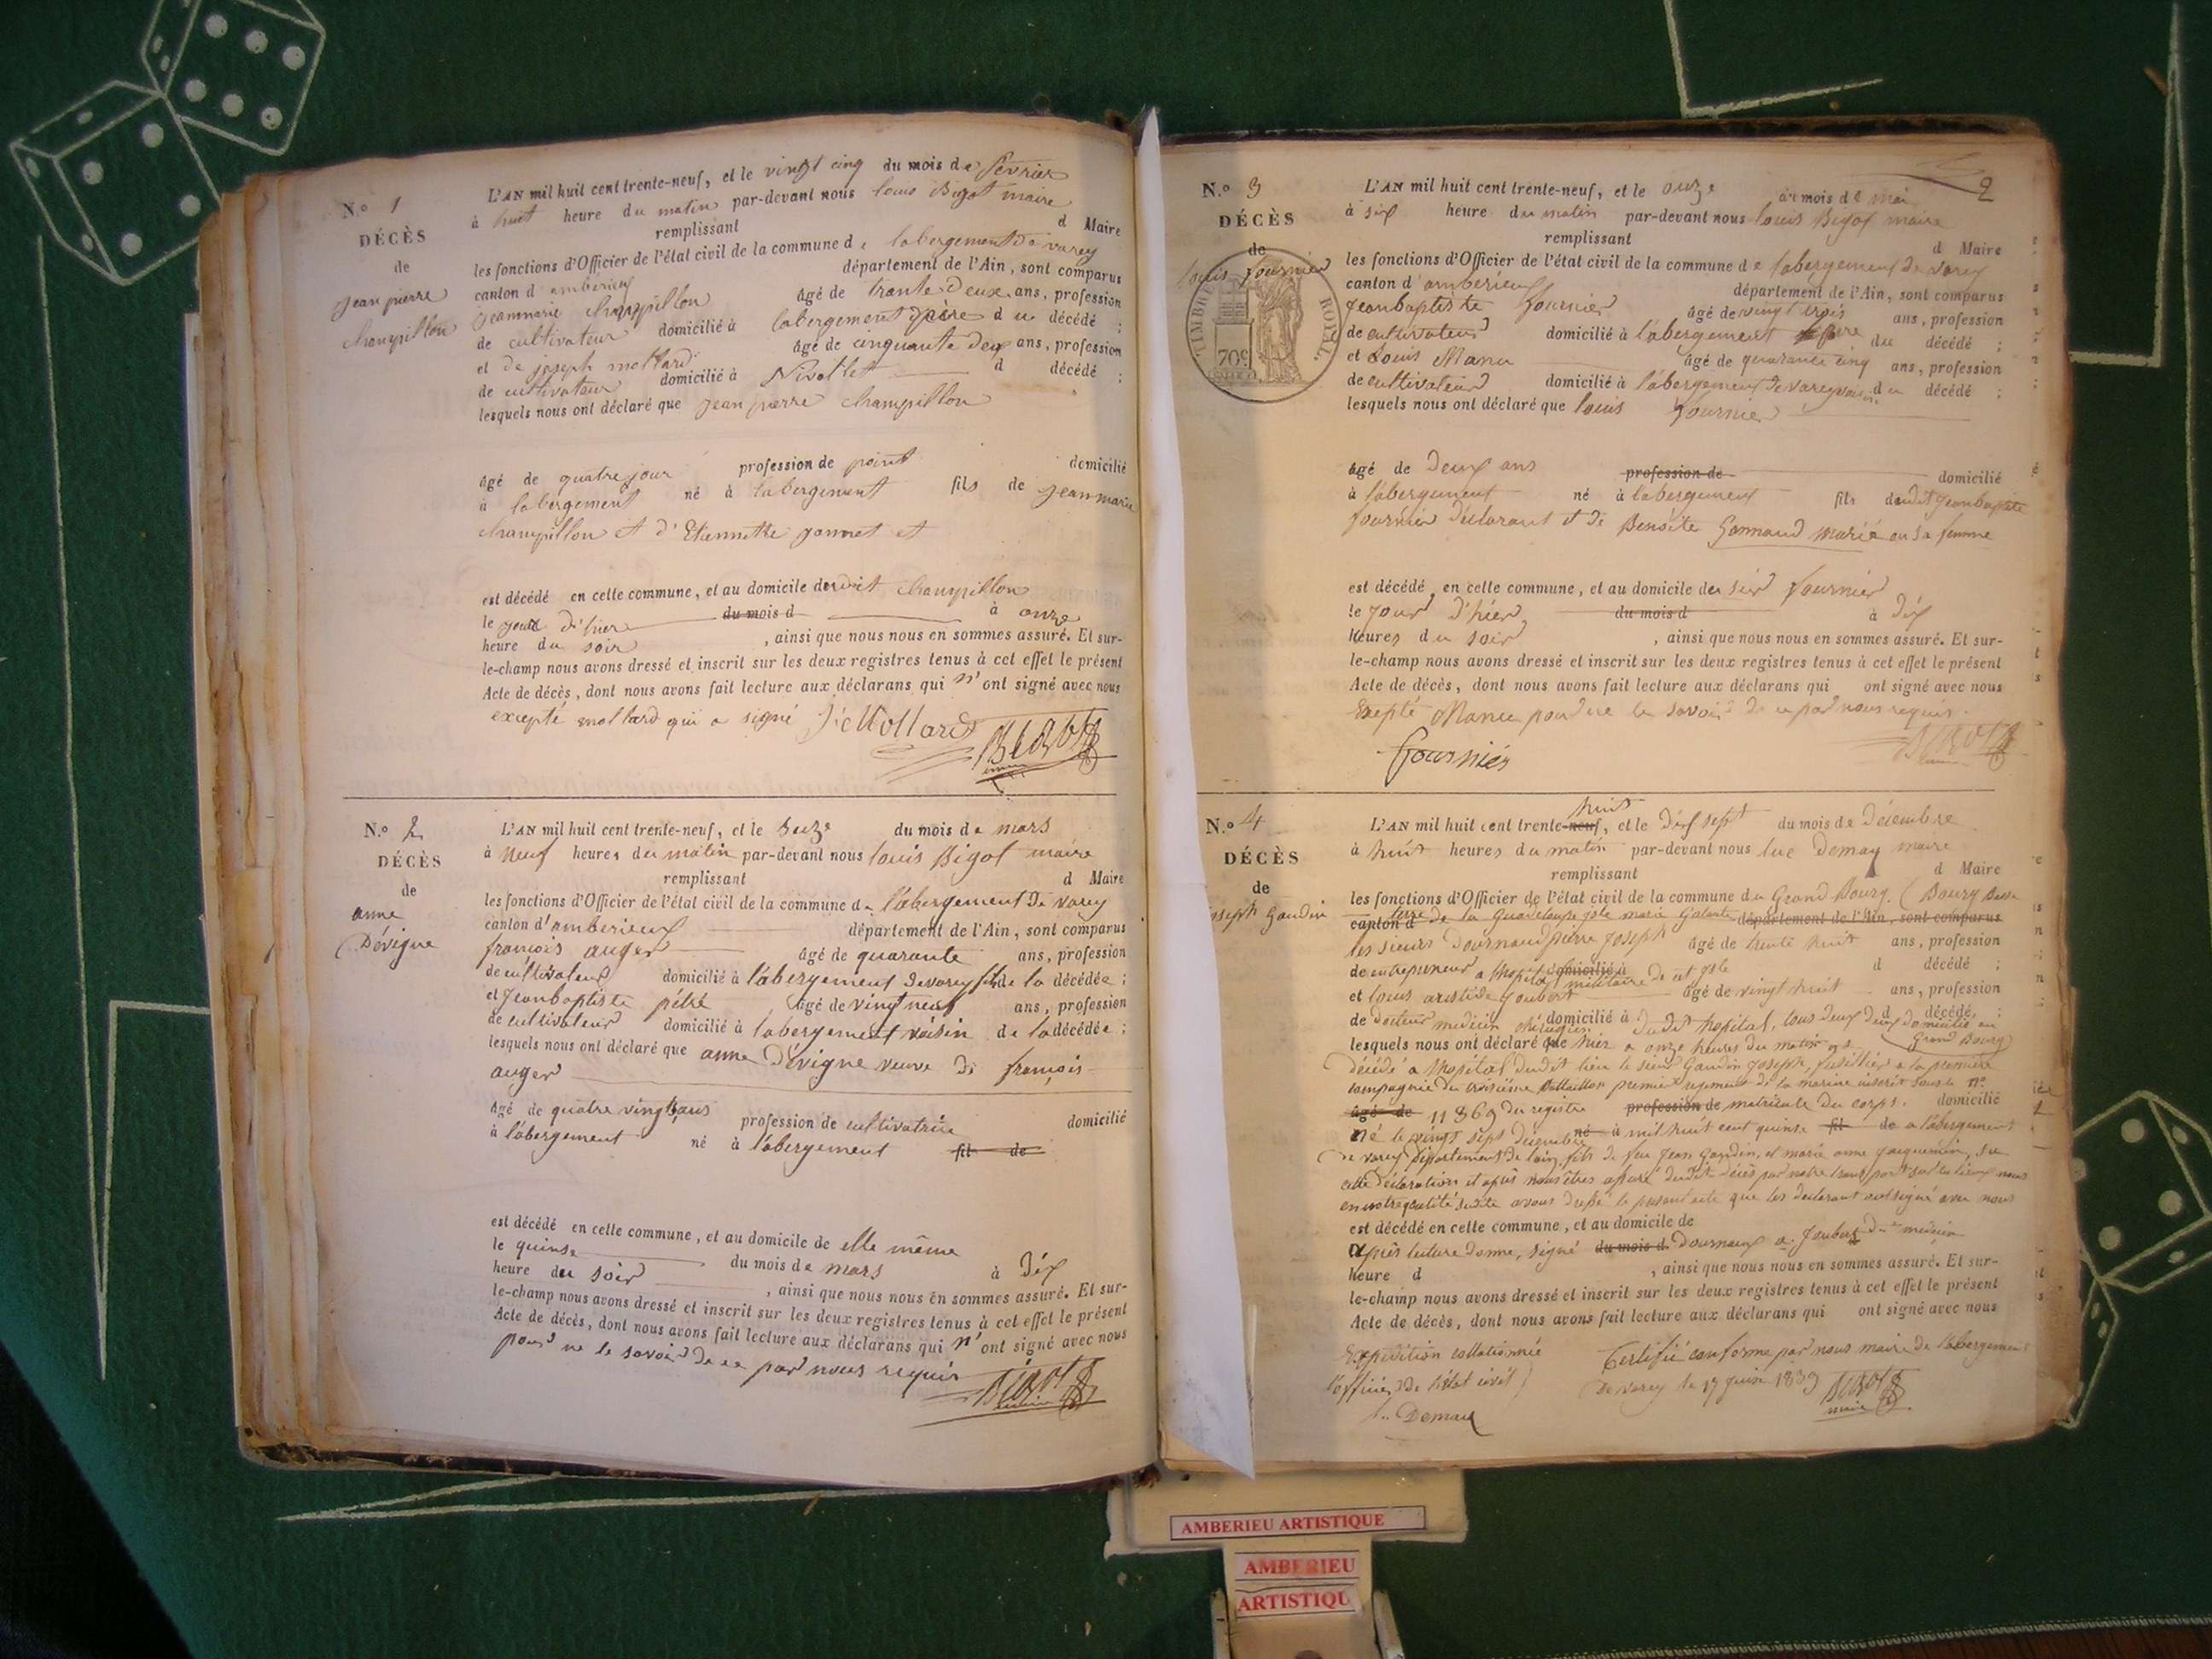 N.º 1
DÉCÈS
de
jean pierre
champillon
L'AN mil huit cent trente-neuf, et le vingt cinq du mois de février
à huit heure du matin par-devant nous louis Bigot maire
remplissant d Maire
les fonctions d'Officier de l'état civil de la commune de labergement de varey
canton d'amberieux département de l'Ain, sont comparus
jeanmarie champillon âgé de trante deux ans, profession
de cultivateur domicilié à labergement père du décédé ;
et de joseph mollard âgé de cinquante deux ans, profession
de cultivateur domicilié à Nivollet d décédé ;
lesquels nous ont déclaré que jean pierre champillon
âgé de quatre jour profession de point domicilié
à labergement né à labergement fils de jeanmarie
champillon et d'Etiennette gonnet et
est décédé en celle commune, et au domicile dudit champillon
le jour d'hier du mois d à onze
heure du soir , ainsi que nous nous en sommes assuré. Et sur-
le-champ nous avons dressé et inscrit sur les deux registres tenus à cet effet le présent
Acte de décès, dont nous avons fait lecture aux déclarans qui n'ont signé avec nous
excepté mollard qui a signé Mollard
BIGOT
N.º 2
DÉCÈS
de
anne
Dévigne
L'AN mil huit cent trente-neuf, et le seize du mois de mars
à neuf heures du matin par-devant nous louis Bigot maire
remplissant d Maire
les fonctions d'Officier de l'état civil de la commune de labergement de varey
canton d'amberieux département de l'Ain, sont comparus
françois auger âgé de quarante ans, profession
de cultivateur domicilié à labergement de varey fils de la décédée ;
et jeanbaptiste âgé de vingt neuf ans, profession
de cultivateur domicilié à labergement voisin de la décédée ;
lesquels nous ont déclaré que anne Dévigne veuve de françois
auger
âgé de quatre vingt ans profession de cultivatrice domicilié
à labergement né à labergement fil de
est décédé en celle commune, et au domicile de elle même
le quinse du mois de mars à dix
heure du soir , ainsi que nous nous en sommes assuré. Et sur-
le-champ nous avons dressé et inscrit sur les deux registres tenus à cet effet le présent
Acte de décès, dont nous avons fait lecture aux déclarans qui n'ont signé avec nous
pour ne le savoir de ce par nous requis
BIGOT
2
N.º 3
DÉCÈS
de
louis fournier
TIMBRE ROYAL
70c
L'AN mil huit cent trente-neuf, et le onze du mois de mai
à six heure du matin par-devant nous louis Bigot maire
remplissant d Maire
les fonctions d'Officier de l'état civil de la commune de labergement de varey
canton d'amberieux département de l'Ain, sont comparus
jeanbaptiste fournier âgé de vingt trois ans, profession
de cultivateur domicilié à labergement père du décédé ;
et Louis Manu âgé de quarante cinq ans, profession
de cultivateur domicilié à labergement de varey voisin du décédé ;
lesquels nous ont déclaré que louis fournier
âgé de deux ans profession de domicilié
à labergement né à labergement fils dudit jeanbaptiste
fournier déclarant et de Benoite Gonnand marié ou sa femme
est décédé en celle commune, et au domicile du fournier
le jour d'hier du mois d à dix
heures du soir , ainsi que nous nous en sommes assuré. Et sur-
le-champ nous avons dressé et inscrit sur les deux registres tenus à cet effet le présent
Acte de décès, dont nous avons fait lecture aux déclarans qui ont signé avec nous
Excepté Manu pour ne le savoir de ce par nous requis.
fournier
BIGOT
N.º 4
DÉCÈS
de
joseph Gaudin
L'AN mil huit cent trente-neuf huit, et le dix sept du mois de décembre
à huit heures du matin par-devant nous luc Demay maire
remplissant d Maire
les fonctions d'Officier de l'état civil de la commune du Grand Bourg. (Bourg basse
canton d terre de la Guadeloupe isle marie Galante département de l'Ain, sont comparus
les sieurs Dournaud pierre joseph âgé de trente huit ans, profession
de entrepreneur a l'hopital domicilié à militaire de cet isle d décédé ;
et louis aristide joubert âgé de vingt huit ans, profession
de docteur medecin domicilié à dudit hopital, tous deux domicilié au d décédé ;
Grand Bourg
lesquels nous ont déclaré que hier a onze heures du matin est
décédé a l'hopital dudit lieu le sieur Gaudin joseph, fusillier a la premiere
compagnie du troisième battaillon premier regiment de la marine inscrit sous le nº
âgé de 11869 du registre profession de matricule du corps. domicilié
né le vingt sept decembre né à mil huit cent quinse fil de a labergement
de varey département de lain, fils de feu jean gaudin, et marie anne jacquemin, sur
cette déclaration et après nous êtres assuré dudit décès par notre transport sur les lieux nous
en notre qualité susdite avons dressé le present acte que les declarant ont signé avec nous
est décédé en celle commune, et au domicile de
après lecture donne, signé du mois d. Dournaux a. joubert d. medecin
heure d , ainsi que nous nous en sommes assuré. Et sur-
le-champ nous avons dressé et inscrit sur les deux registres tenus à cet effet le présent
Acte de décès, dont nous avons fait lecture aux déclarans qui ont signé avec nous
Expédition collationnée
l'officier de l'état civil
L. Demay
Certifié conforme par nous maire de labergement
de varey le 17 juin 1839 BIGOT
maire
AMBERIEU ARTISTIQUE
AMBERIEU
ARTISTIQU